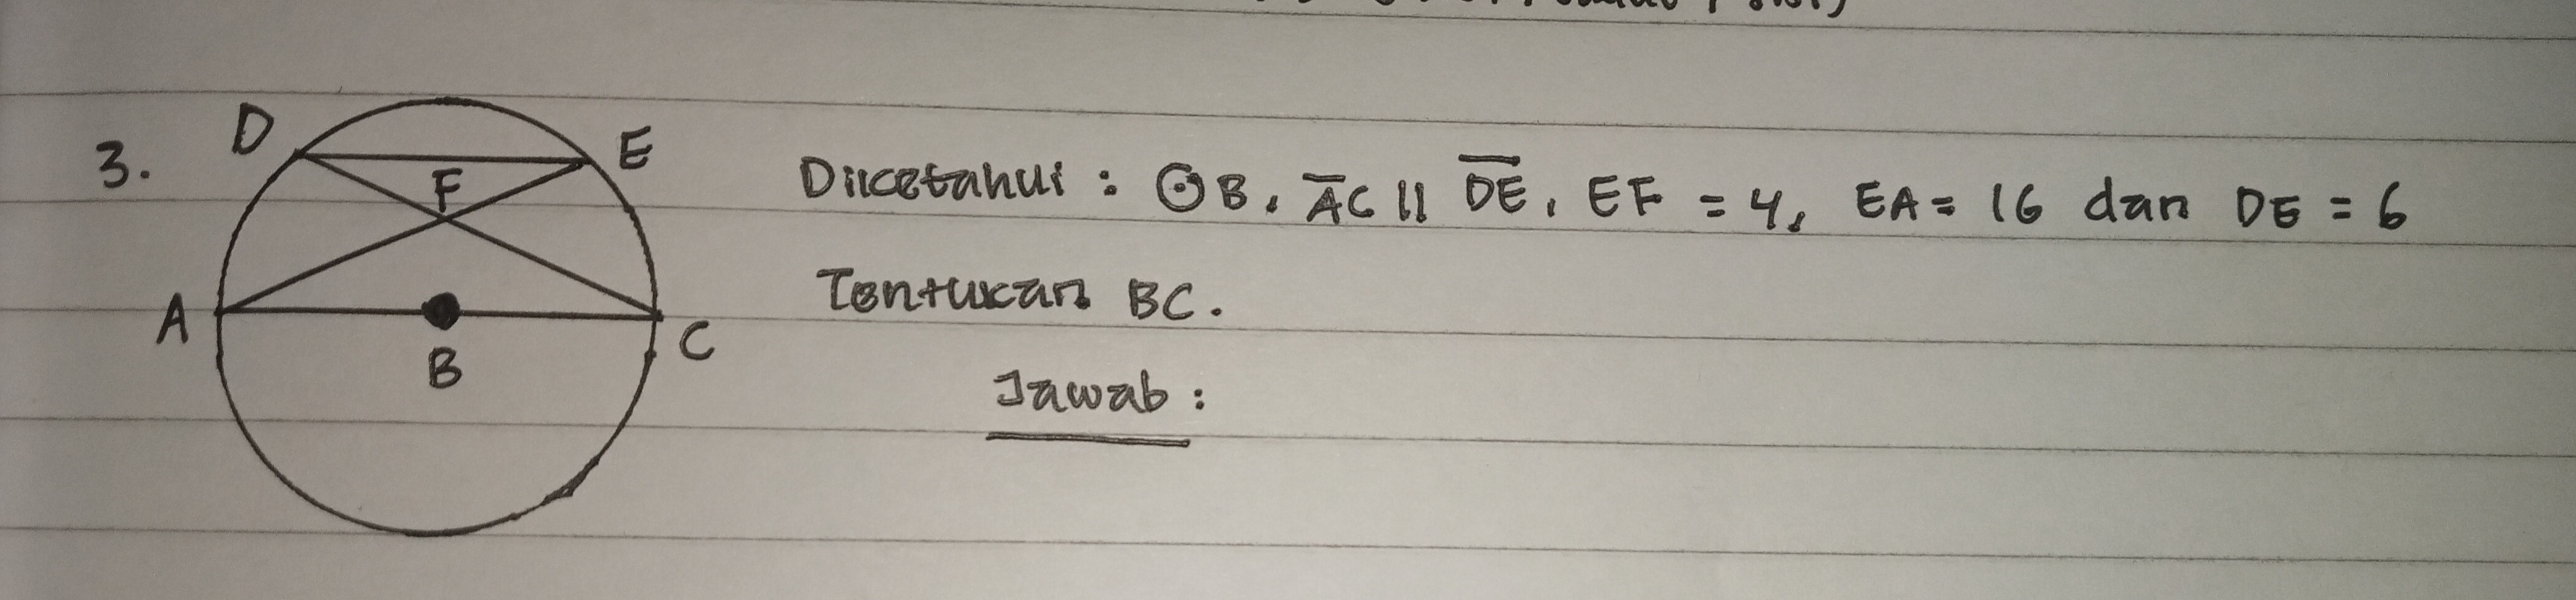 3.
D
E
F
A
B
C
Diketahui : ⊙B, A̅C̅ || D̅E̅, EF = 4, EA = 16 dan DE = 6
Tentukan BC.
Jawab :